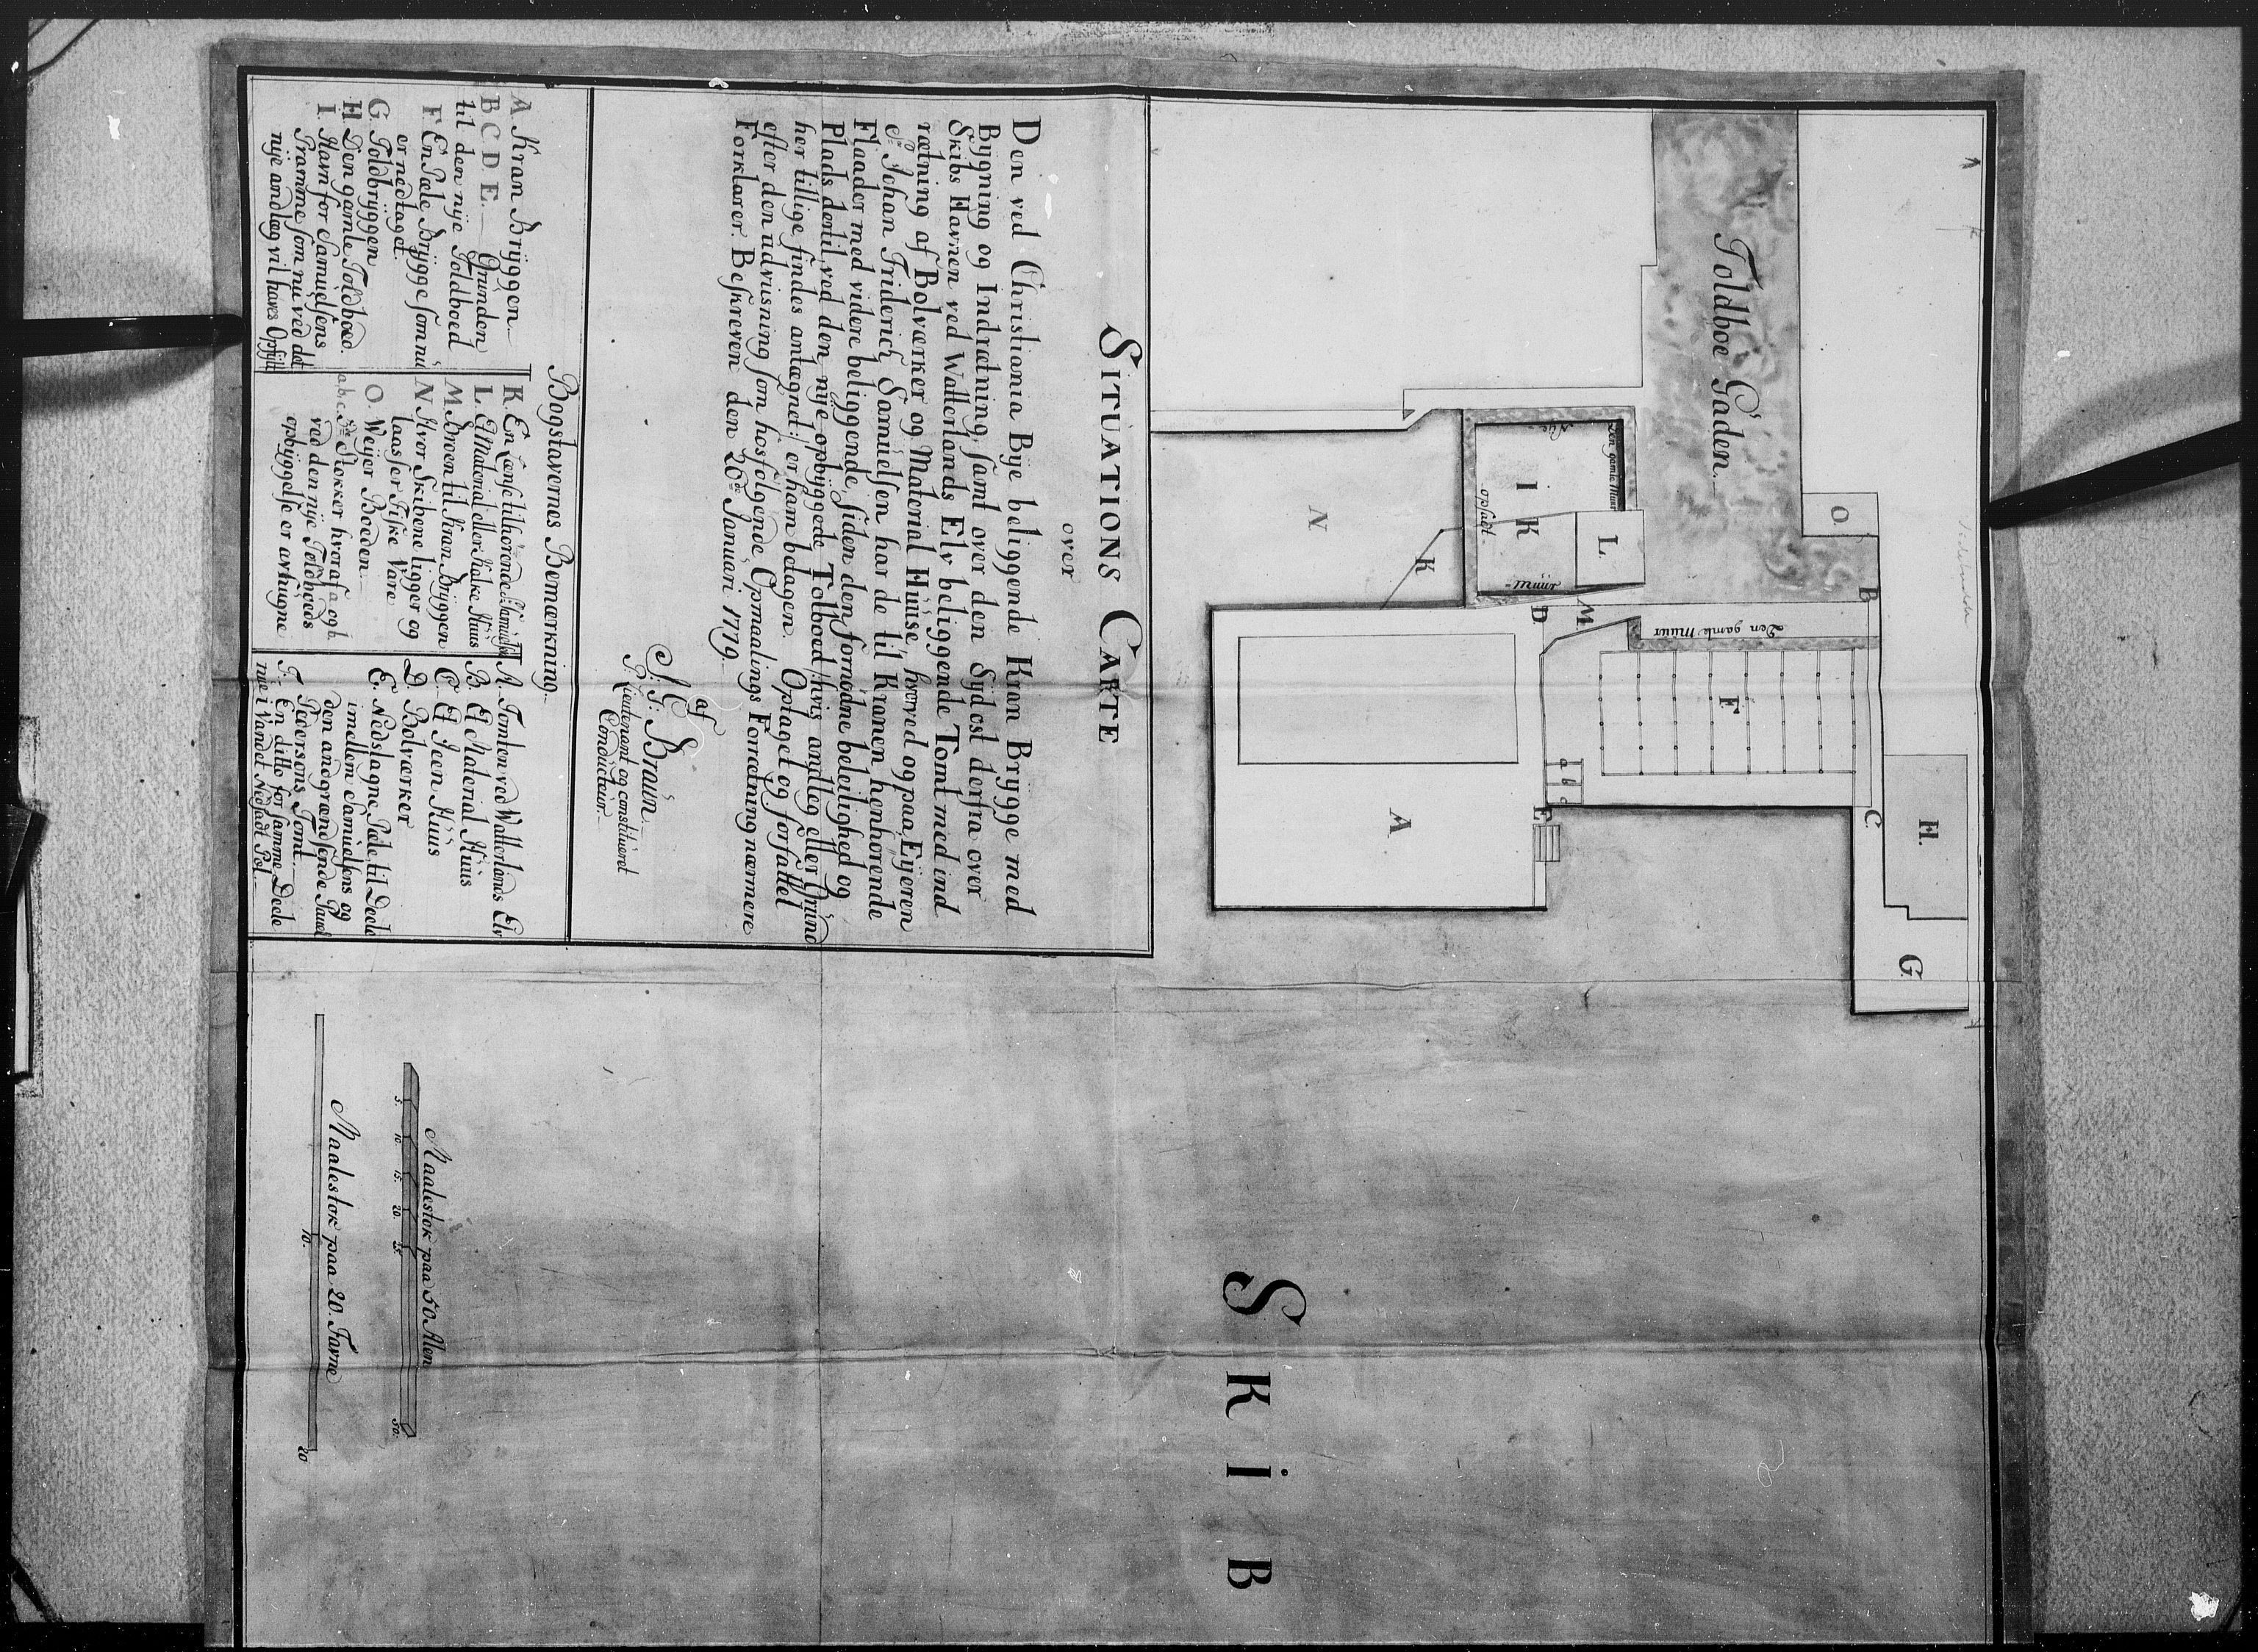 SITUATIONS CARTE
over
Den ved Christiania Bÿe beliggende Kran Brygge med
Bygning og Indrætning, samt over den Sydost derfra over
Skibs Havnen ved Watterlands Elv beliggende Tomt med ind
rætning af Bolværker og Material Huuse, hvorved og paa, Eÿeren
Sr. Johan Friderich Samuelsen har de til Kranen henhørende
Flaader med videre beliggende, siden den fornødne beleilighed og
Plads dertil, ved den nÿe opbÿggede Tolboed, hvis andlæg eller Grund
her tillige findes antægnet, er ham betagen. Optaget og forfattet
efter den udvisning som hosfølgende Opmaalings Forretning nærmere
Forklarer. Beskreven den 20de Januari 1779.
af
J. G. Braun.
P. Lieutenant og constitueret
Conducteur.
Bogstavernes Bemærkning.
A. Kran Brÿggen
B C D E. Grunden
til den nÿe Toldboed
F. En Pæle Brÿgge som nu
er nedtaget
G. Toldbrÿggen
H. Den gamle Toldboed.
I. Havn for Samuelsens
Pramme som nu ved det
nÿe andlæg vil haves Opfÿlt
K. En Lænse tilhørende Sr. Samuelsen
L. Et Material eller Kalke Huus
M. Broen til Kran Brÿggen
N. Hvor Skibene ligger og
laasser Fiske Vare
O. Weÿer Boeden
a b c. 3de Stokker hvoraf a og b.
ved den nÿe Toldboeds
opbÿggelse er avhugne
A. Tomten ved Watterlands Elv
B. Et Material Huus
C. Et Iern Huus
D. Bolværker
E. Nedslagne Pæle til Deele
imellem Samuelsens og
den andgrændsende Pauel
Pedersens Tomt
F. En ditto for samme Deele
nue i Vandet Nedsadt Pæl
Toldboe Gaden.
O.
B
H.
C
G.
Den gamle Muur
Nÿe
I
opsadt
muur
K
L.
N
K
D
M
Den gamle Muur
F
a b c
E
A
SKIB
Maalestok paa 50 Alen
5. 10. 15. 20. 25. 50.
Maalestok paa 20. Favne
10. 20